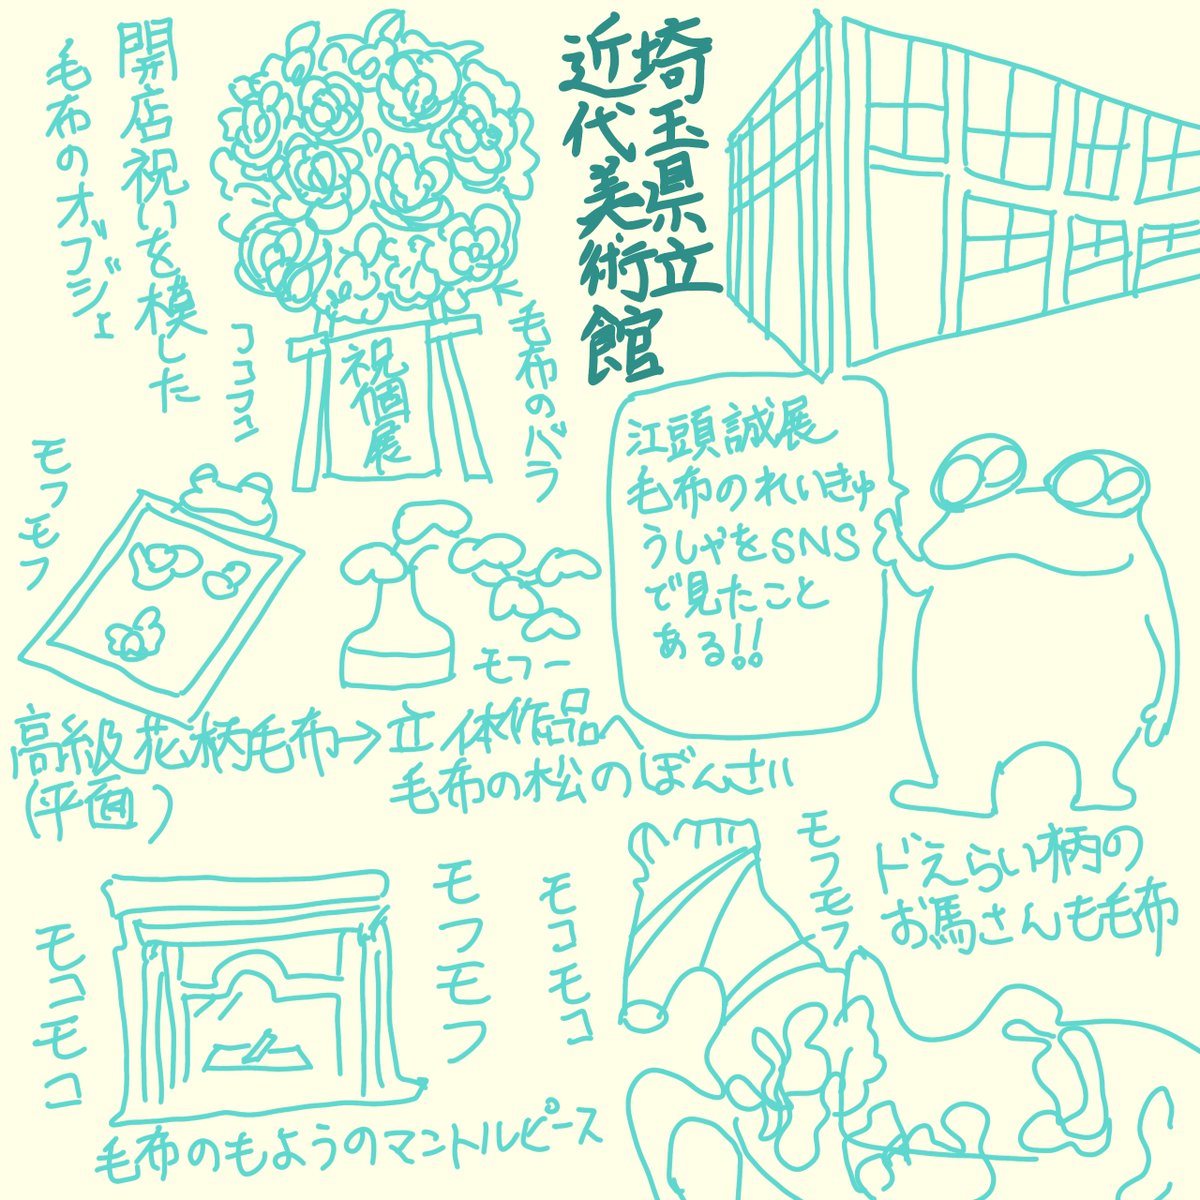 埼玉県立
近代美術館
開店祝いを模した
毛布のオブジェ
コココココ
毛布のバラ
祝個展
江頭誠展
毛布のれいきゅ
うしゃをSNS
で見たこと
ある!!
モフモフ
モフー
高級花柄毛布→立体作品
(平面)
毛布の松のぼんさい
ドえらい柄の
お馬さんも毛布
モフモフ
モコモコ
モフモフ
モコモコ
毛布のもようのマントルピース